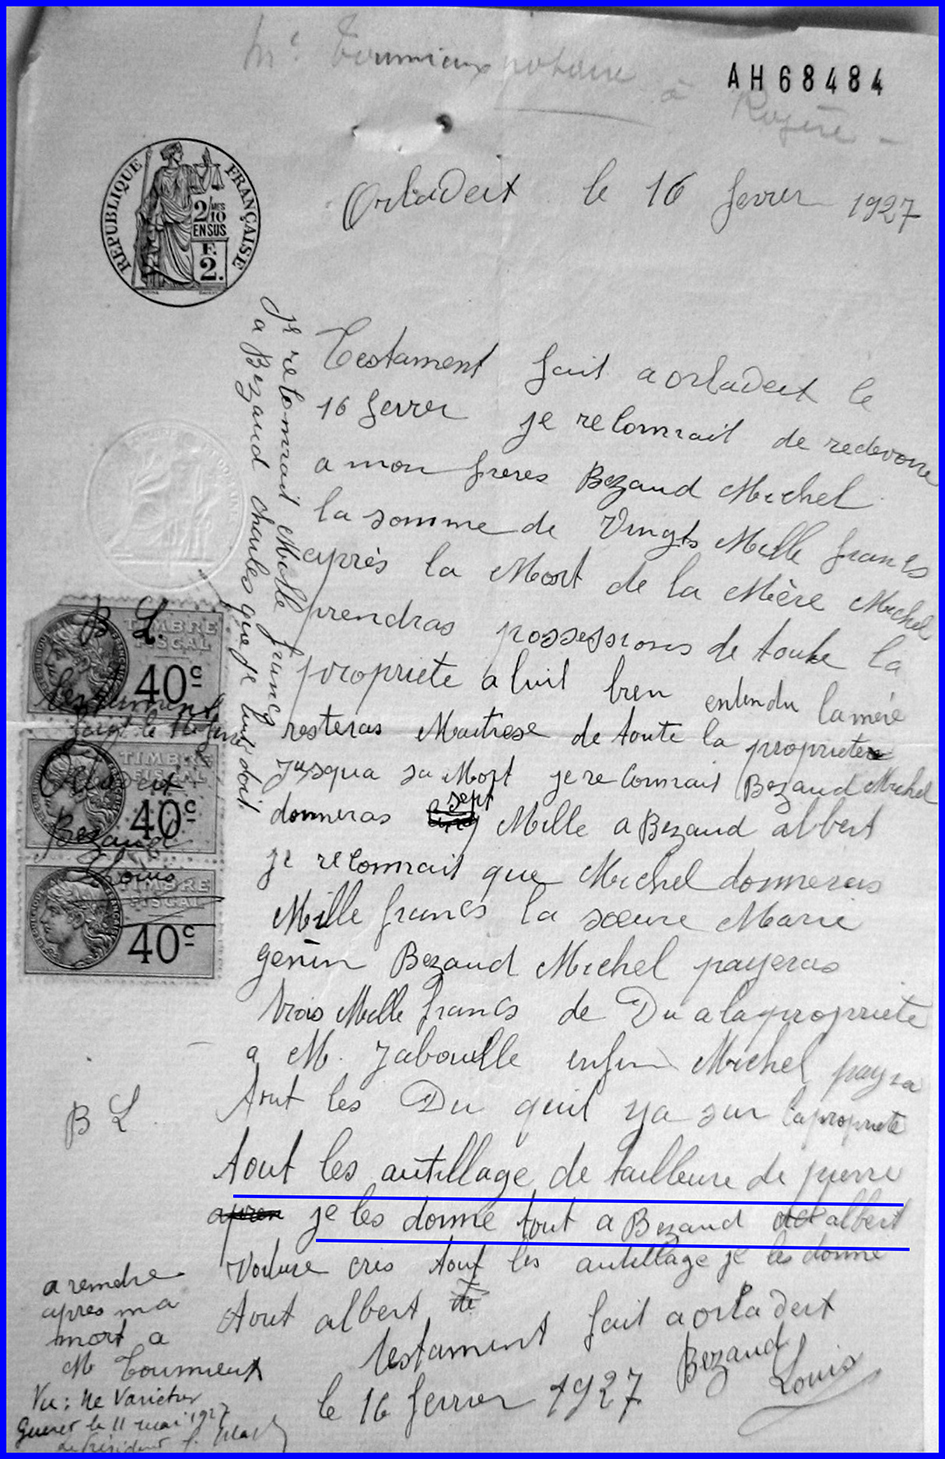 Mc Toumieux notaire
à Royère -
AH68484
RÉPUBLIQUE FRANÇAISE
2/10MES
EN SUS
F.
2.
Orladeix le 16 fevrer 1927
Testament fait a orladeix le
16 fevrer je reconnait de redevoire
a mon freres Bezaud Michel
la somme de Vingts Mille francs
après la Mort de la Mère Michel
prendras possessions de toute la
propriete a luit bien entendu la mère
resteras Maitrese de toute la propriete
jusqua sa Mort je reconnait Bezaud Michel
donneras sept Mille a Bezaud albert
je reconnait que Michel donneras
Mille francs la soeure Marie
genin Bezaud Michel payeras
trois Mille francs de Du a la propriete
a M. Jabouille enfin Michel payra
tout les Du quil ya sur la propriete
tout les autillage de tailleure de pierre
je les donne tout a Bezaud albert
Voiture cris tout les autillage je les donne
tout albert
testament fait a orladeix
le 16 fevrier 1927 Bezaud
Louis
je reconnait Mille francs
a Bezaud charles que je luit doit
B L
TIMBRE
FISCAL
40c
testament
fait le 16 fevre
TIMBRE
FISCAL
40c
Orladeix
Bezaud
Louis
TIMBRE
FISCAL
40c
B L
a rendre
apres ma
mort a
M Toumieux
Vu: Ne Varietur
Gueret le 11 mai 1927
Le Président